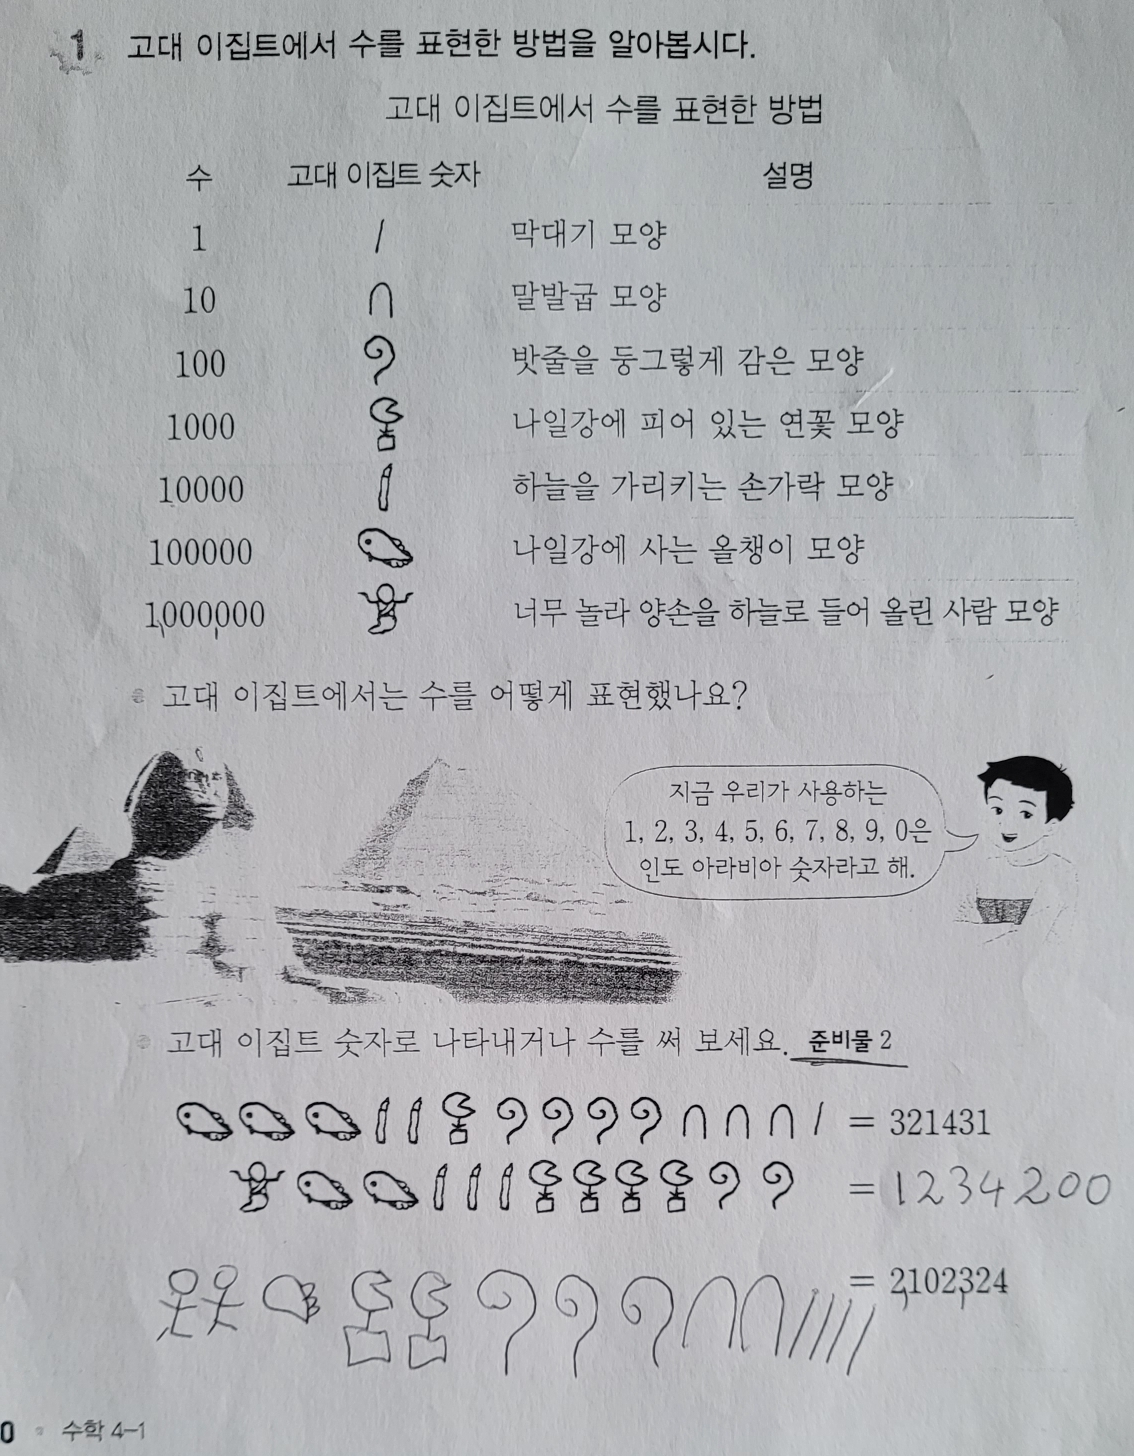 1 고대 이집트에서 수를 표현한 방법을 알아봅시다.
고대 이집트에서 수를 표현한 방법
수 고대 이집트 숫자 설명
1 막대기 모양
10 말발굽 모양
100 밧줄을 둥그렇게 감은 모양
1000 나일강에 피어 있는 연꽃 모양
10000 하늘을 가리키는 손가락 모양
100000 나일강에 사는 올챙이 모양
1000000 너무 놀라 양손을 하늘로 들어 올린 사람 모양
고대 이집트에서는 수를 어떻게 표현했나요?
지금 우리가 사용하는
1, 2, 3, 4, 5, 6, 7, 8, 9, 0은
인도 아라비아 숫자라고 해.
고대 이집트 숫자로 나타내거나 수를 써 보세요. 준비물 2
= 321431
= 1234200
= 2102324
0 수학 4-1